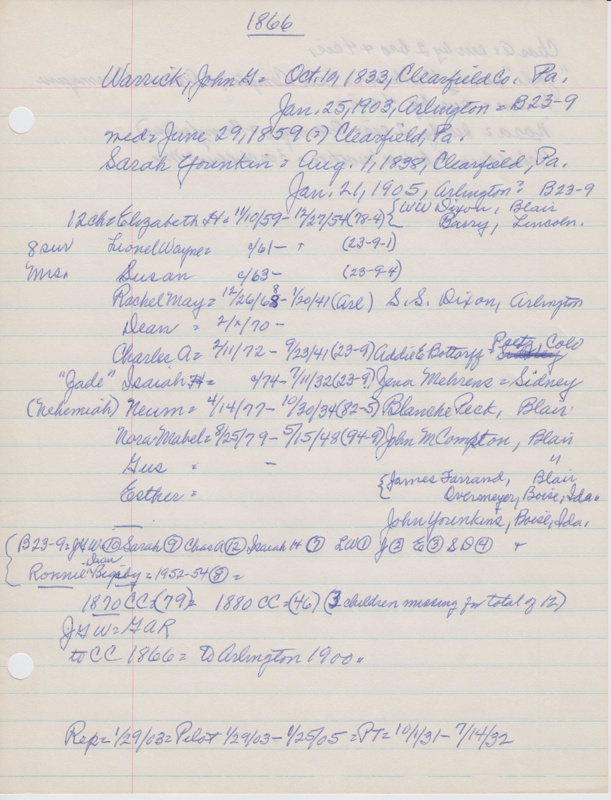 1866
Warrick, John G. = Oct. 19, 1833, Clearfield Co. Pa.
Jan. 25, 1903, Arlington = B23-9
med = June 29, 1859 (?) Clearfield, Pa.
Sarah Younkin = Aug. 1, 1838, Clearfield, Pa.
Jan. 21, 1905, Arlington? B23-9
12ch = Elizabeth H = 11/10/59 - 12/27/54 (78-9) { WW Dixon, Blair
Barry, Lincoln.
8 sur Lionel Wayne = c/61 - ? (23-9-1)
Mrs. Susan c/63 - (23-9-4)
Rachel May = 12/26/68 - 1/20/41 (Arl) S.S. Dixon, Arlington
Dean = 2/x/70 -
Charles A = 2/11/72 - 9/23/41 (23-9) Addie E Bottorff = Poetz, Colo
"Jade" Isaiah H = c/74 - 7/11/32 (23-9) Jena Mehrens = Sidney
(Nehemiah) Neum = 4/14/77 - 10/30/34 (82-5) Blanche Peck, Blair
Nora Mabel = 8/25/79 - 5/15/48 (94-9) John M Compton, Blair
Gus = - "
Esther = { James Farrand, Blair
Overmeyer, Boise, Ida.
John Younkins, Boise, Ida.
B23-9 = JGW (10) Sarah (9) Chas A (12) Isaiah H (7) LW (1) J (2) E (3) SD (4) +
Ronnie Dean Bigsby = 1952-54 (8) =
1870 CC = (79) = 1880 CC = (46) (3 children missing for total of 12)
JGW = GAR
to CC 1866 = to Arlington 1900.
Rep = 1/29/03 = Pilot 1/29/03 - 1/25/05 = PT = 10/1/31 - 7/14/32